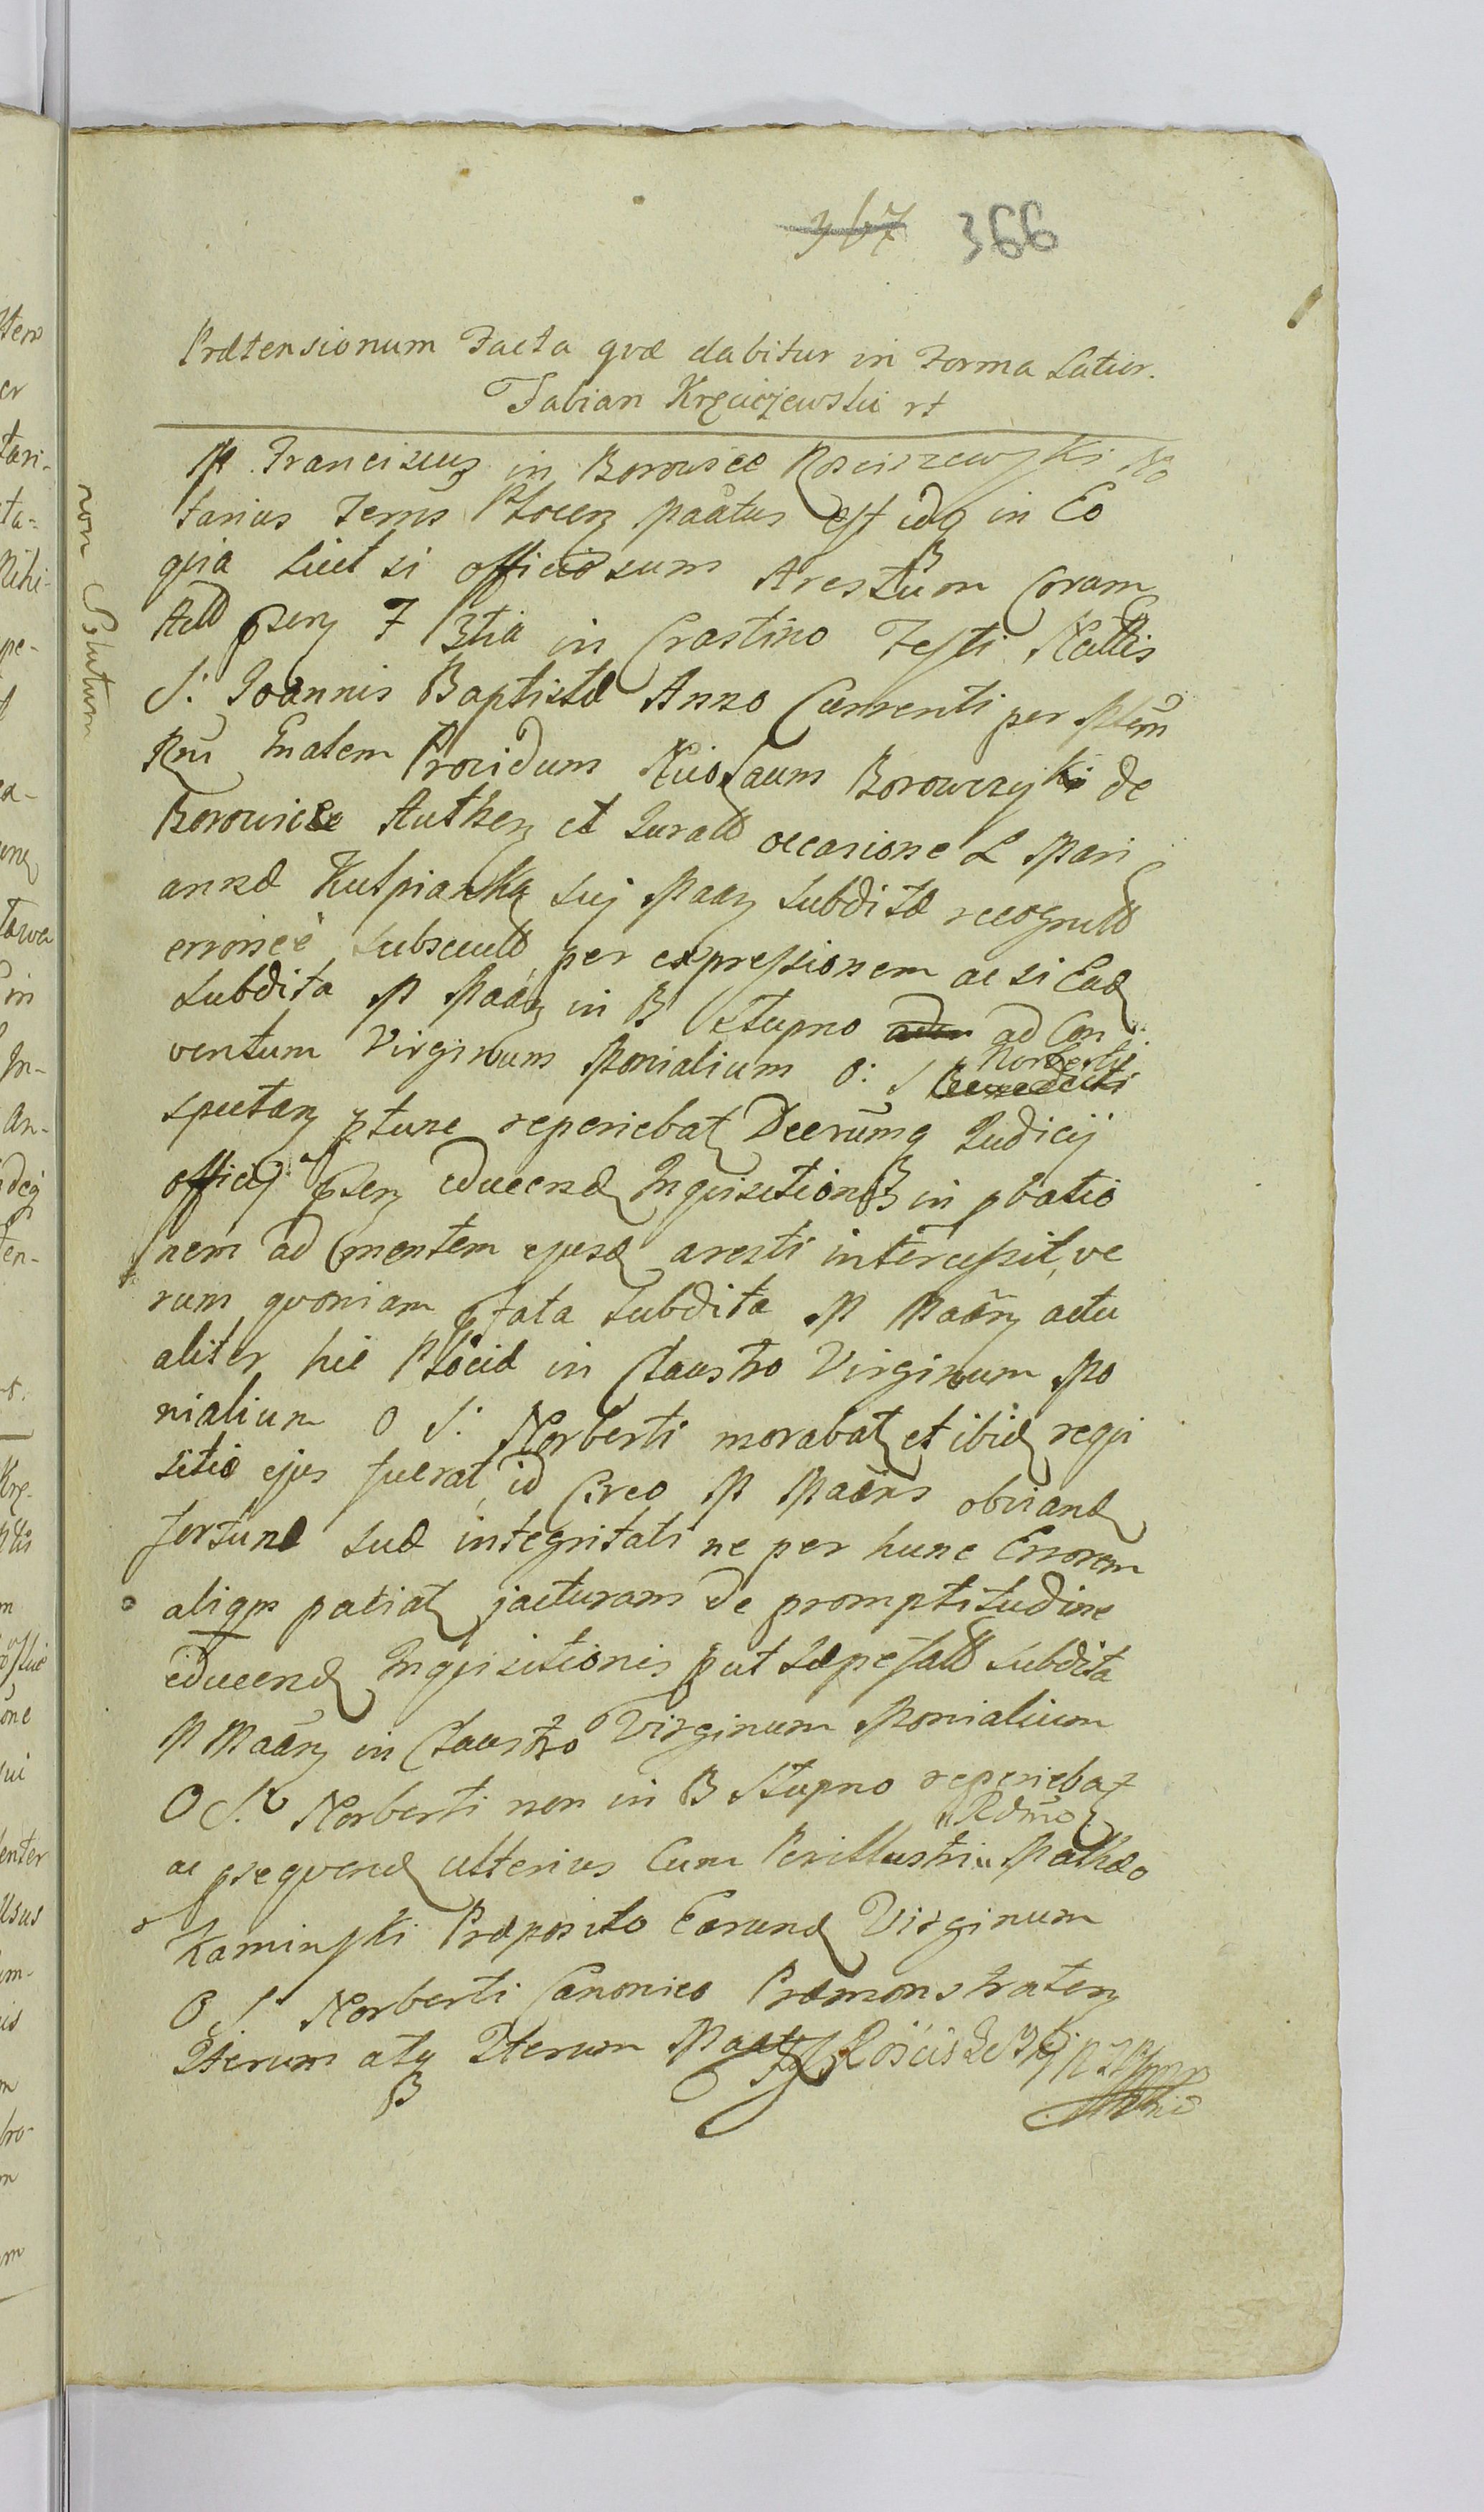 367 366
Prætensionum Facta qvæ dabitur in Forma Latior.
Fabian Kręciczewski rt
non Solutum
M Franciscus in Borowice Rosciszewski No
tarius Terrīs Plocen maātus est idq in Eo
qvia licet si officiosum Arestum Coram
Actis psen F 3tia in Crastino Festi Nattis
S: Joannis Baptistæ Anno Currenti per Mtem
Rnī Gnalem Providum Nicolaum Borowczyk de
Borowice Authen et Jurato occasione L Mari
annæ Kulpianka suj Maan subditæ recognito
erroneè subsecuto per expressionem ac si Ead
subdita M Maan in B Słupno ad Con
ventum Virginum Monialium O: S Norberti
spectan ptunc reperiebat Decrūmq Judicij
officij psen educend Inqvisitionis in pbatio
nem ad mentem ejusd aresti intercessit, ve
rum qvoniam pfata subdita M Maan actu
aliter hic Plociæ in Claustro Virginum Mo
nialium O S: Norberti morabat et ibid reqvi
sitio ejus fuerat, id Circo M Maans obviand
fortunæ suæ integritati ne per hunc Errorem
aliqm patiat jacturam de promptitudine
educend Inqvisitionis put sæpefato subdita
M Maan in Claustro Virginum Monialium
O S: Norberti non in B Słupno reperiebat
ac pseqvend ulterius Cum Perillustri Rdmo Mathæo
Kaminski Præposito Earund Virginum
O S: Norberti Canonico Præmonstraten
Iterum atq Iterum Maat
F Rościszewski